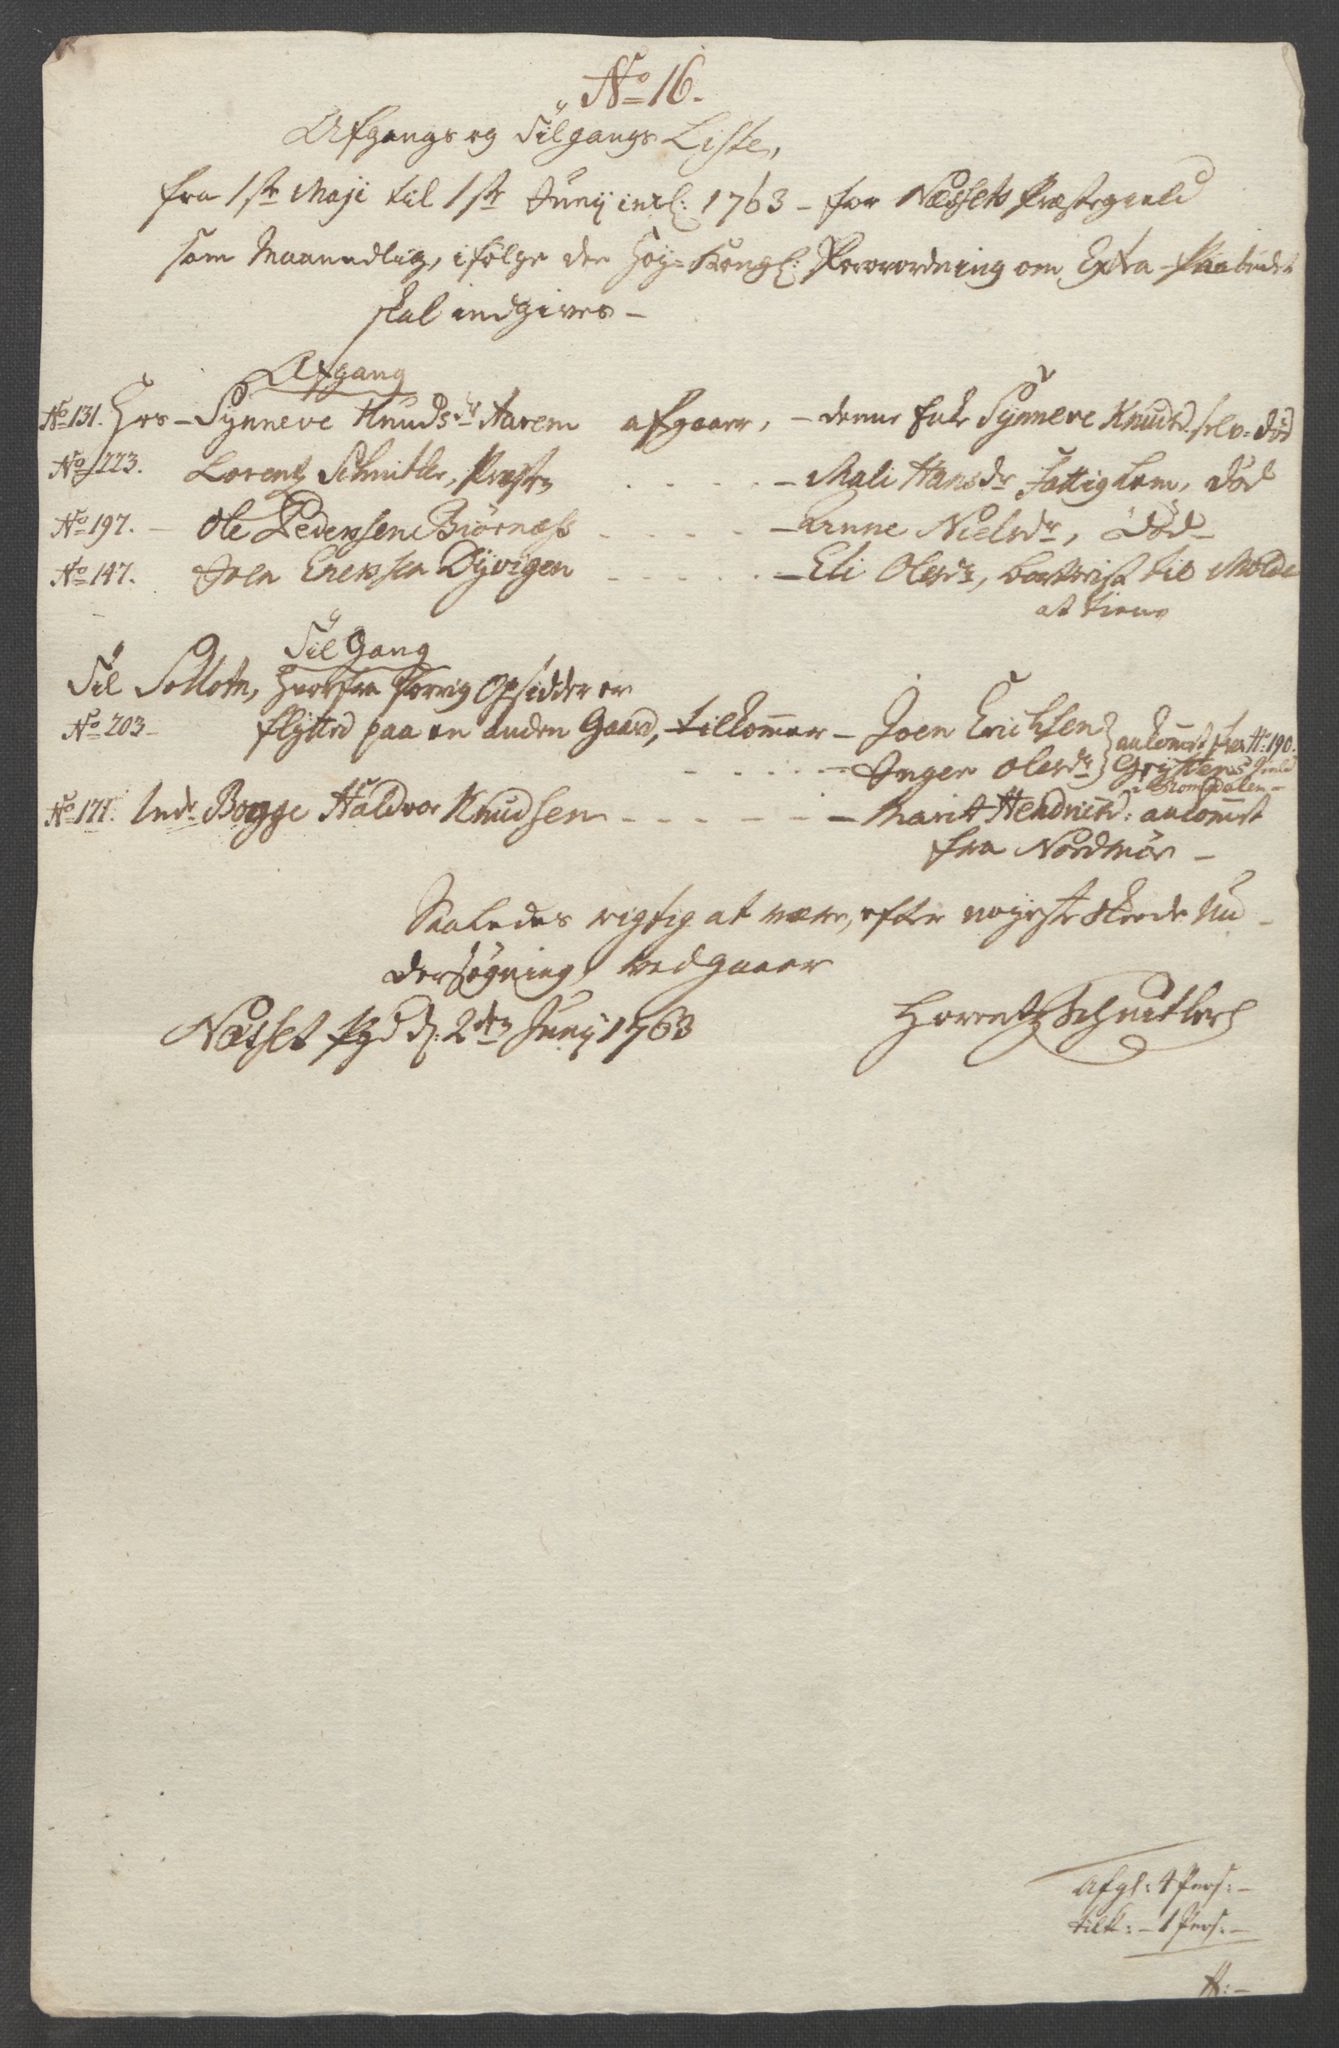 No 16.
Afgangs og Tilgangs Liste,
fra 1ste Maji til 1ste Junij incl: 1763 – for Næssets Præstegield
som Maanedlig, ifølge den Høy-Kongl: Forordning om Extra-Paabudet
skal indgives –
Afgang
No 131. Hos – Synneve Knudsdr Aarem afgaaer, – denne Enke Synneve Knudsd. selv. død
No 223. Lorentz Schnitler, Præsten . . . . – Mali Hansdr Fattiglem, død
No 197. – Ole Pedersen Biørnæss . . . . – Anne Nielsdr, død –
No 147. Joen Ericksen Dyvigen . . . . – Eli Olesdr, bortreist til Molde
at tiene
Til Gang
Til Sollotn, hvorfra forrig Opsidder er
No 203 – flytted paa en anden Gaard, tilkommer – Joen Erichsen
ankommet fra No 190.
. . . . – Inger Olesdr Gryttens Gield
i Romsdalen –
No 171. Indr Bogge Haldvor Knudsen . . . . – Marit Hendrichsd: ankommet
fra Nordmør –
Saaledes rigtig at være, efter nøyeste skeede Un-
dersøgning, vedgaaer
Næsset Pgd d. 2den Junij 1763
Lorentz Schnitler
Afg: 4 Pers: –
tilk: – 1 Pers: –